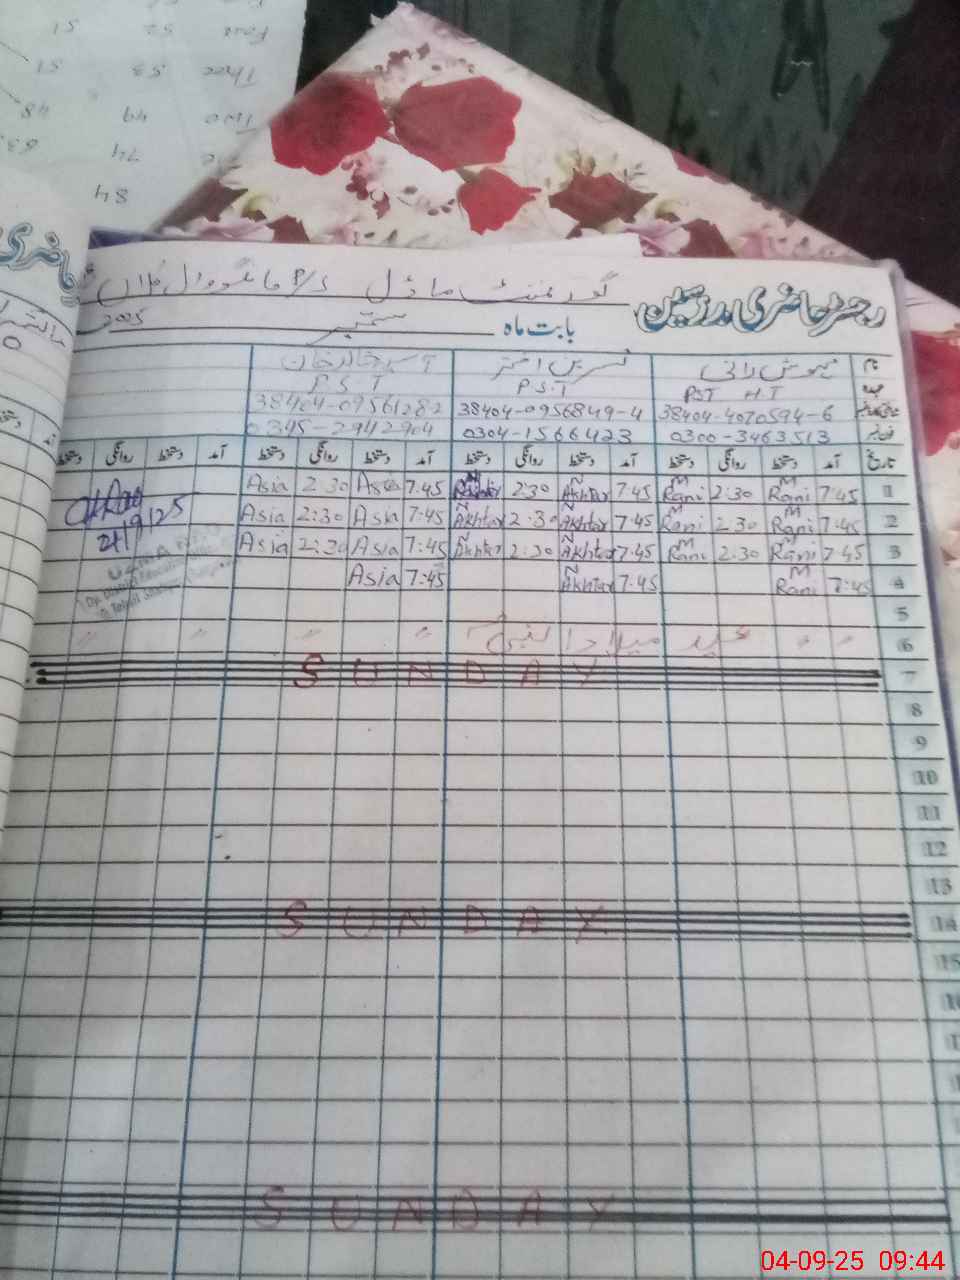 رجسٹر حاضری مدرسین
گورنمنٹ ماڈل P/S
بابت ماہ ستمبر 2025
نام مہوش رانی نسرین اختر آسیہ خالد خان
عہدہ PST H.T P.S.T P.S.T
38404-4070594-6 38404-0956849-4 38404-0956128-2
فون نمبر 0300-3463513 0304-1566423 0345-2942904
تاریخ آمد دستخط روانگی دستخط آمد دستخط روانگی دستخط آمد دستخط روانگی دستخط آمد دستخط روانگی دستخط
1 7:45 M Rani 2:30 M Rani 7:45 N Akhtar 2:30 Akhtar 7:45 Asia 2:30 Asia
2 7:45 M Rani 2:30 M Rani 7:45 N Akhtar 2:30 N Akhtar 7:45 Asia 2:30 Asia
3 7:45 M Rani 2:30 M Rani 7:45 N Akhtar 2:30 N Akhtar 7:45 Asia 2:30 Asia
4 7:45 M Rani 7:45 N Akhtar 7:45 Asia
5
6 " " عید میلاد النبی " " " "
7 SUNDAY
8
9
10
11
12
13
14 SUNDAY
15
SUNDAY
4/9/25
Four 52 51
Three 53 51
Two 49 48
74 63
84
04-09-25 09:44